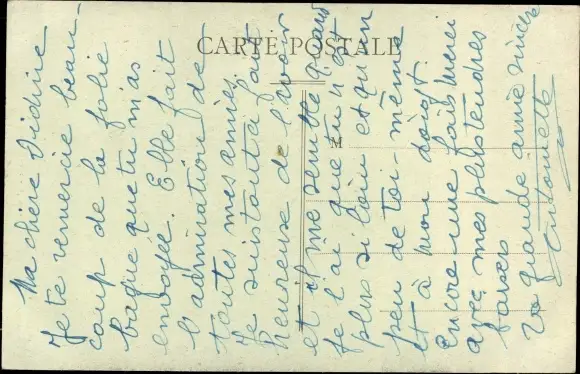 CARTE POSTALE
M
Ma chère Didine
Je te remercie beau-
coup de la jolie
bague que tu m'as
envoyée. Elle fait
l'admiration de
toutes mes amies.
Je suis tout à fait
heureuse de l'avoir
et il me semble quand
je l'ai que tu n'est
plus si loin et qu'un
peu de toi-même
est à mon doigt.
Encore une fois merci
avec mes plus tendres
baisers
Ta grande amie sincère
Antoinette